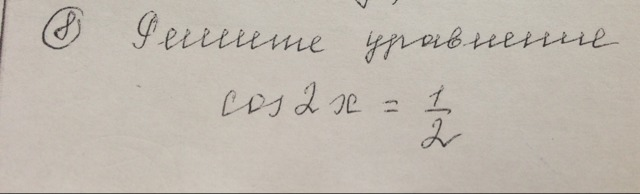 8) Решите уравнение
cos2x = 1/2